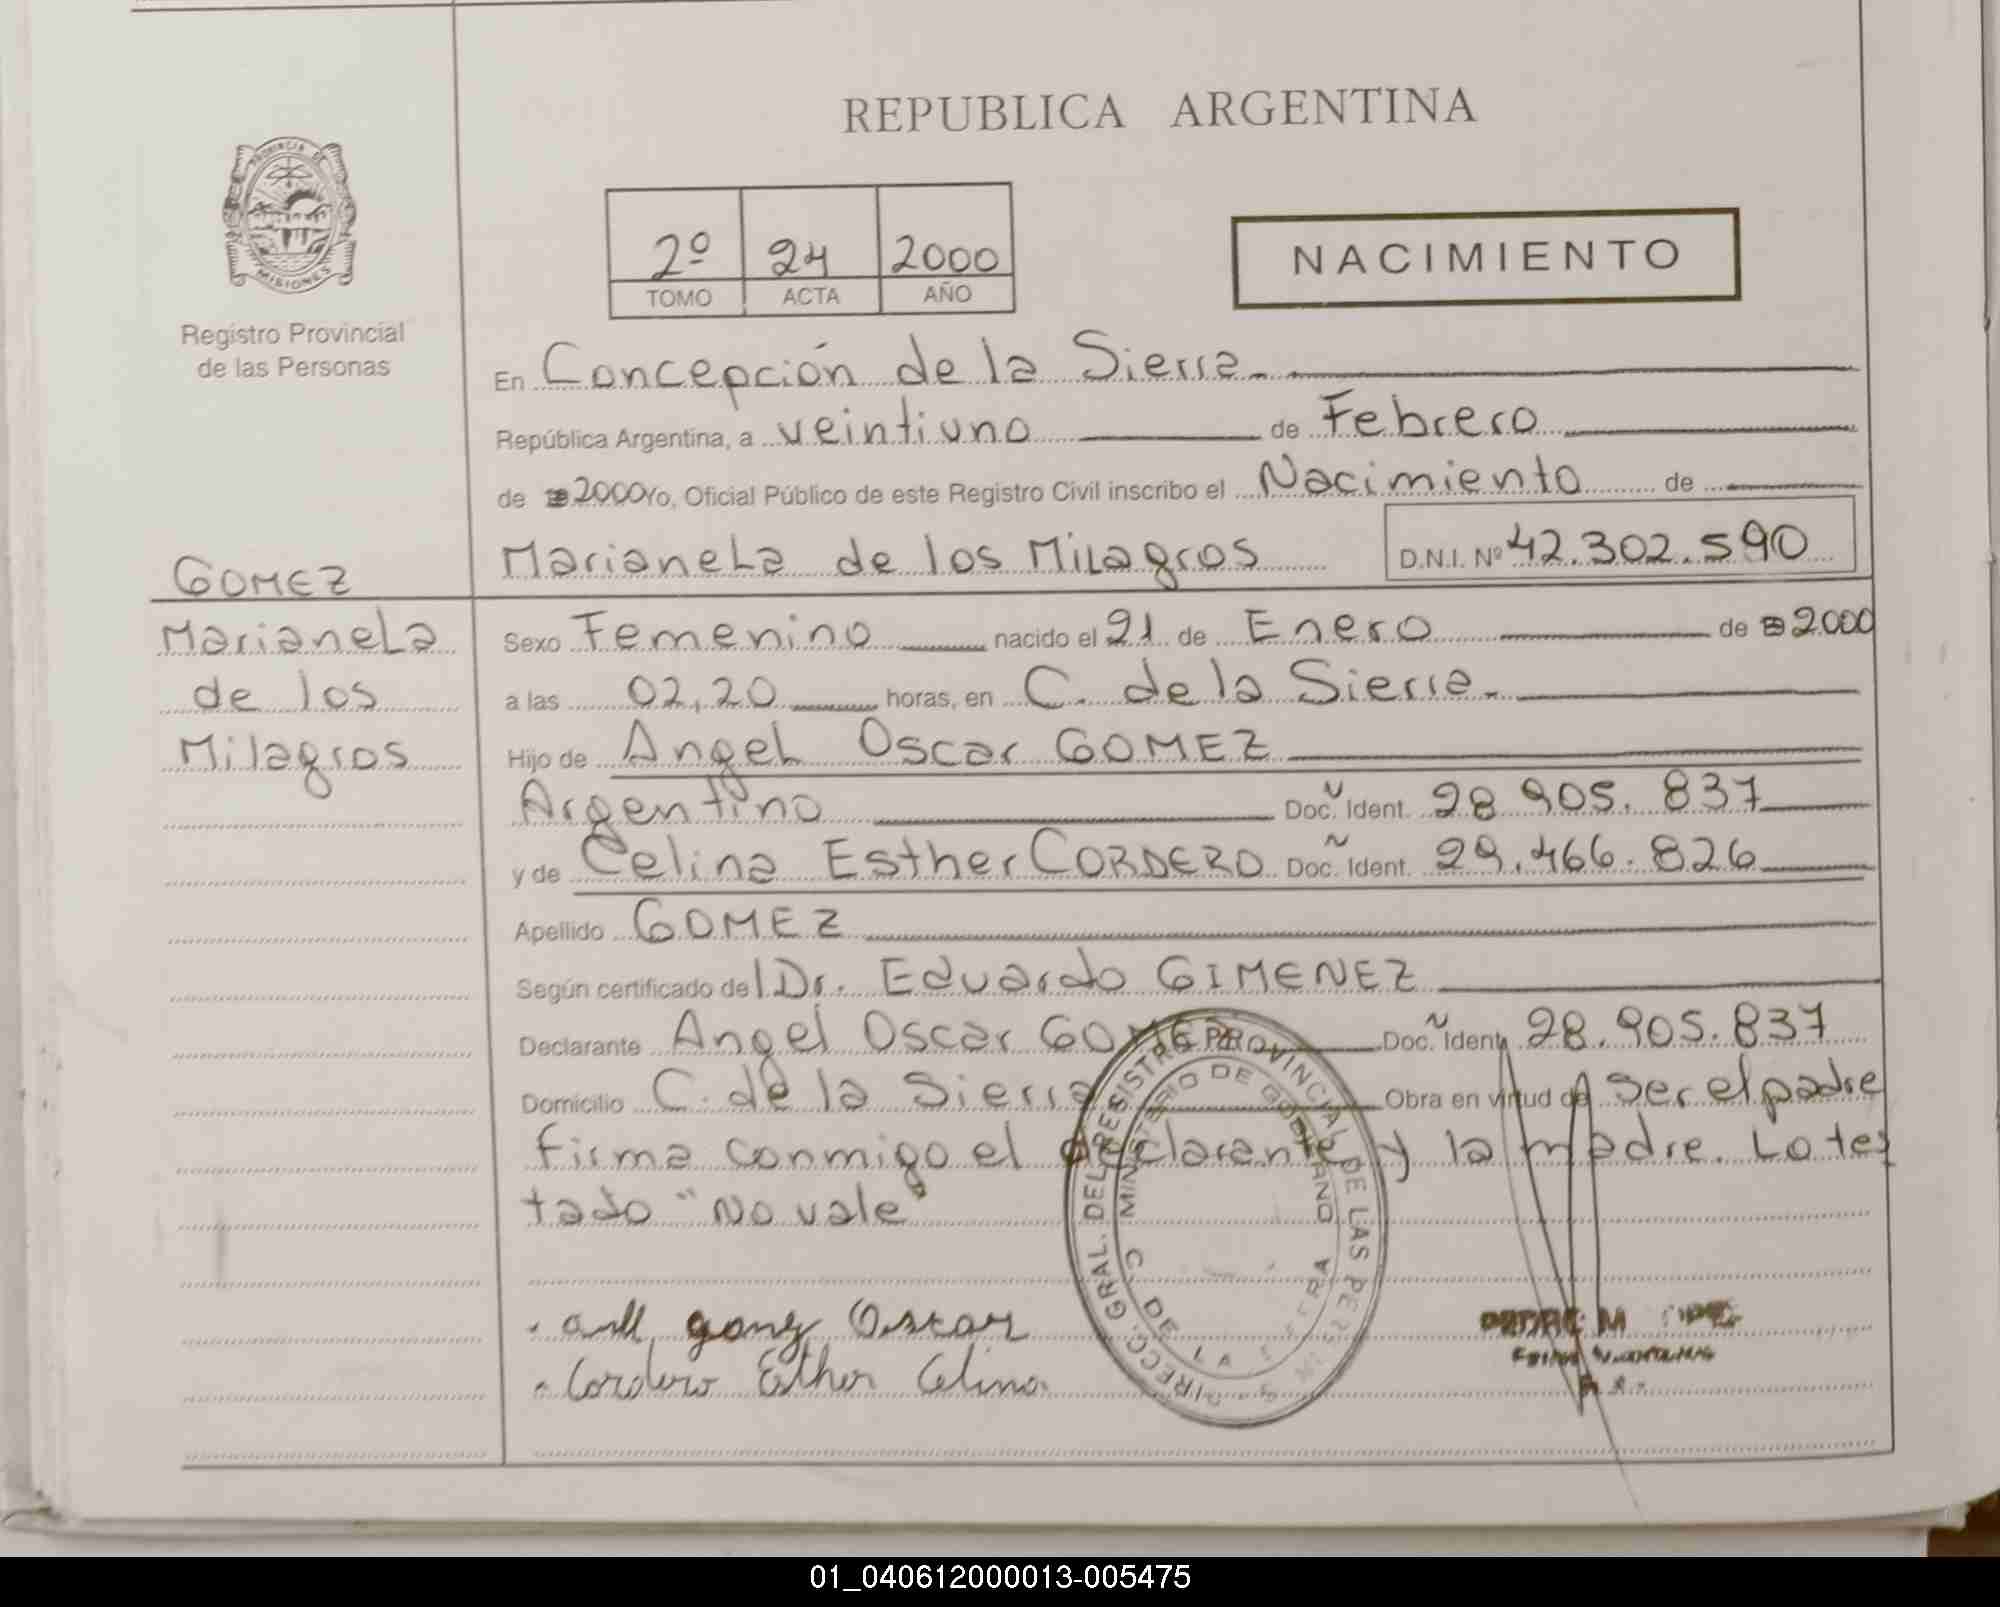 REPUBLICA ARGENTINA
PROVINCIA DE
MISIONES
Registro Provincial
de las Personas
2º 24 2000
TOMO ACTA AÑO
NACIMIENTO
En Concepción de la Sierra
República Argentina, a veintiuno de Febrero
de 2000 Yo, Oficial Público de este Registro Civil inscribo el Nacimiento de
Marianela de los Milagros D.N.I. Nº 42.302.590
GOMEZ
Marianela
de los
Milagros
Sexo Femenino nacido el 21 de Enero de 2000
a las 02,20 horas, en C. de la Sierra
Hijo de Angel Oscar GOMEZ
Argentino Doc. Ident. 28.905.837
y de Celina Esther CORDERO Doc. Ident. 29.466.826
Apellido GOMEZ
Según certificado del Dr. Eduardo GIMENEZ
Declarante Angel Oscar GOMEZ Doc. Ident. 28.905.837
Domicilio C. de la Sierra Obra en virtud de ser el padre
firma conmigo el declarante y la madre. Lo tes
tado "No vale"
DIRECC. GRAL. DEL REGISTRO PROVINCIAL DE LAS
MINISTERIO DE GOBIERNO
C. DE LA
Oscar
Cordero Esther Celina
01_040612000013-005475